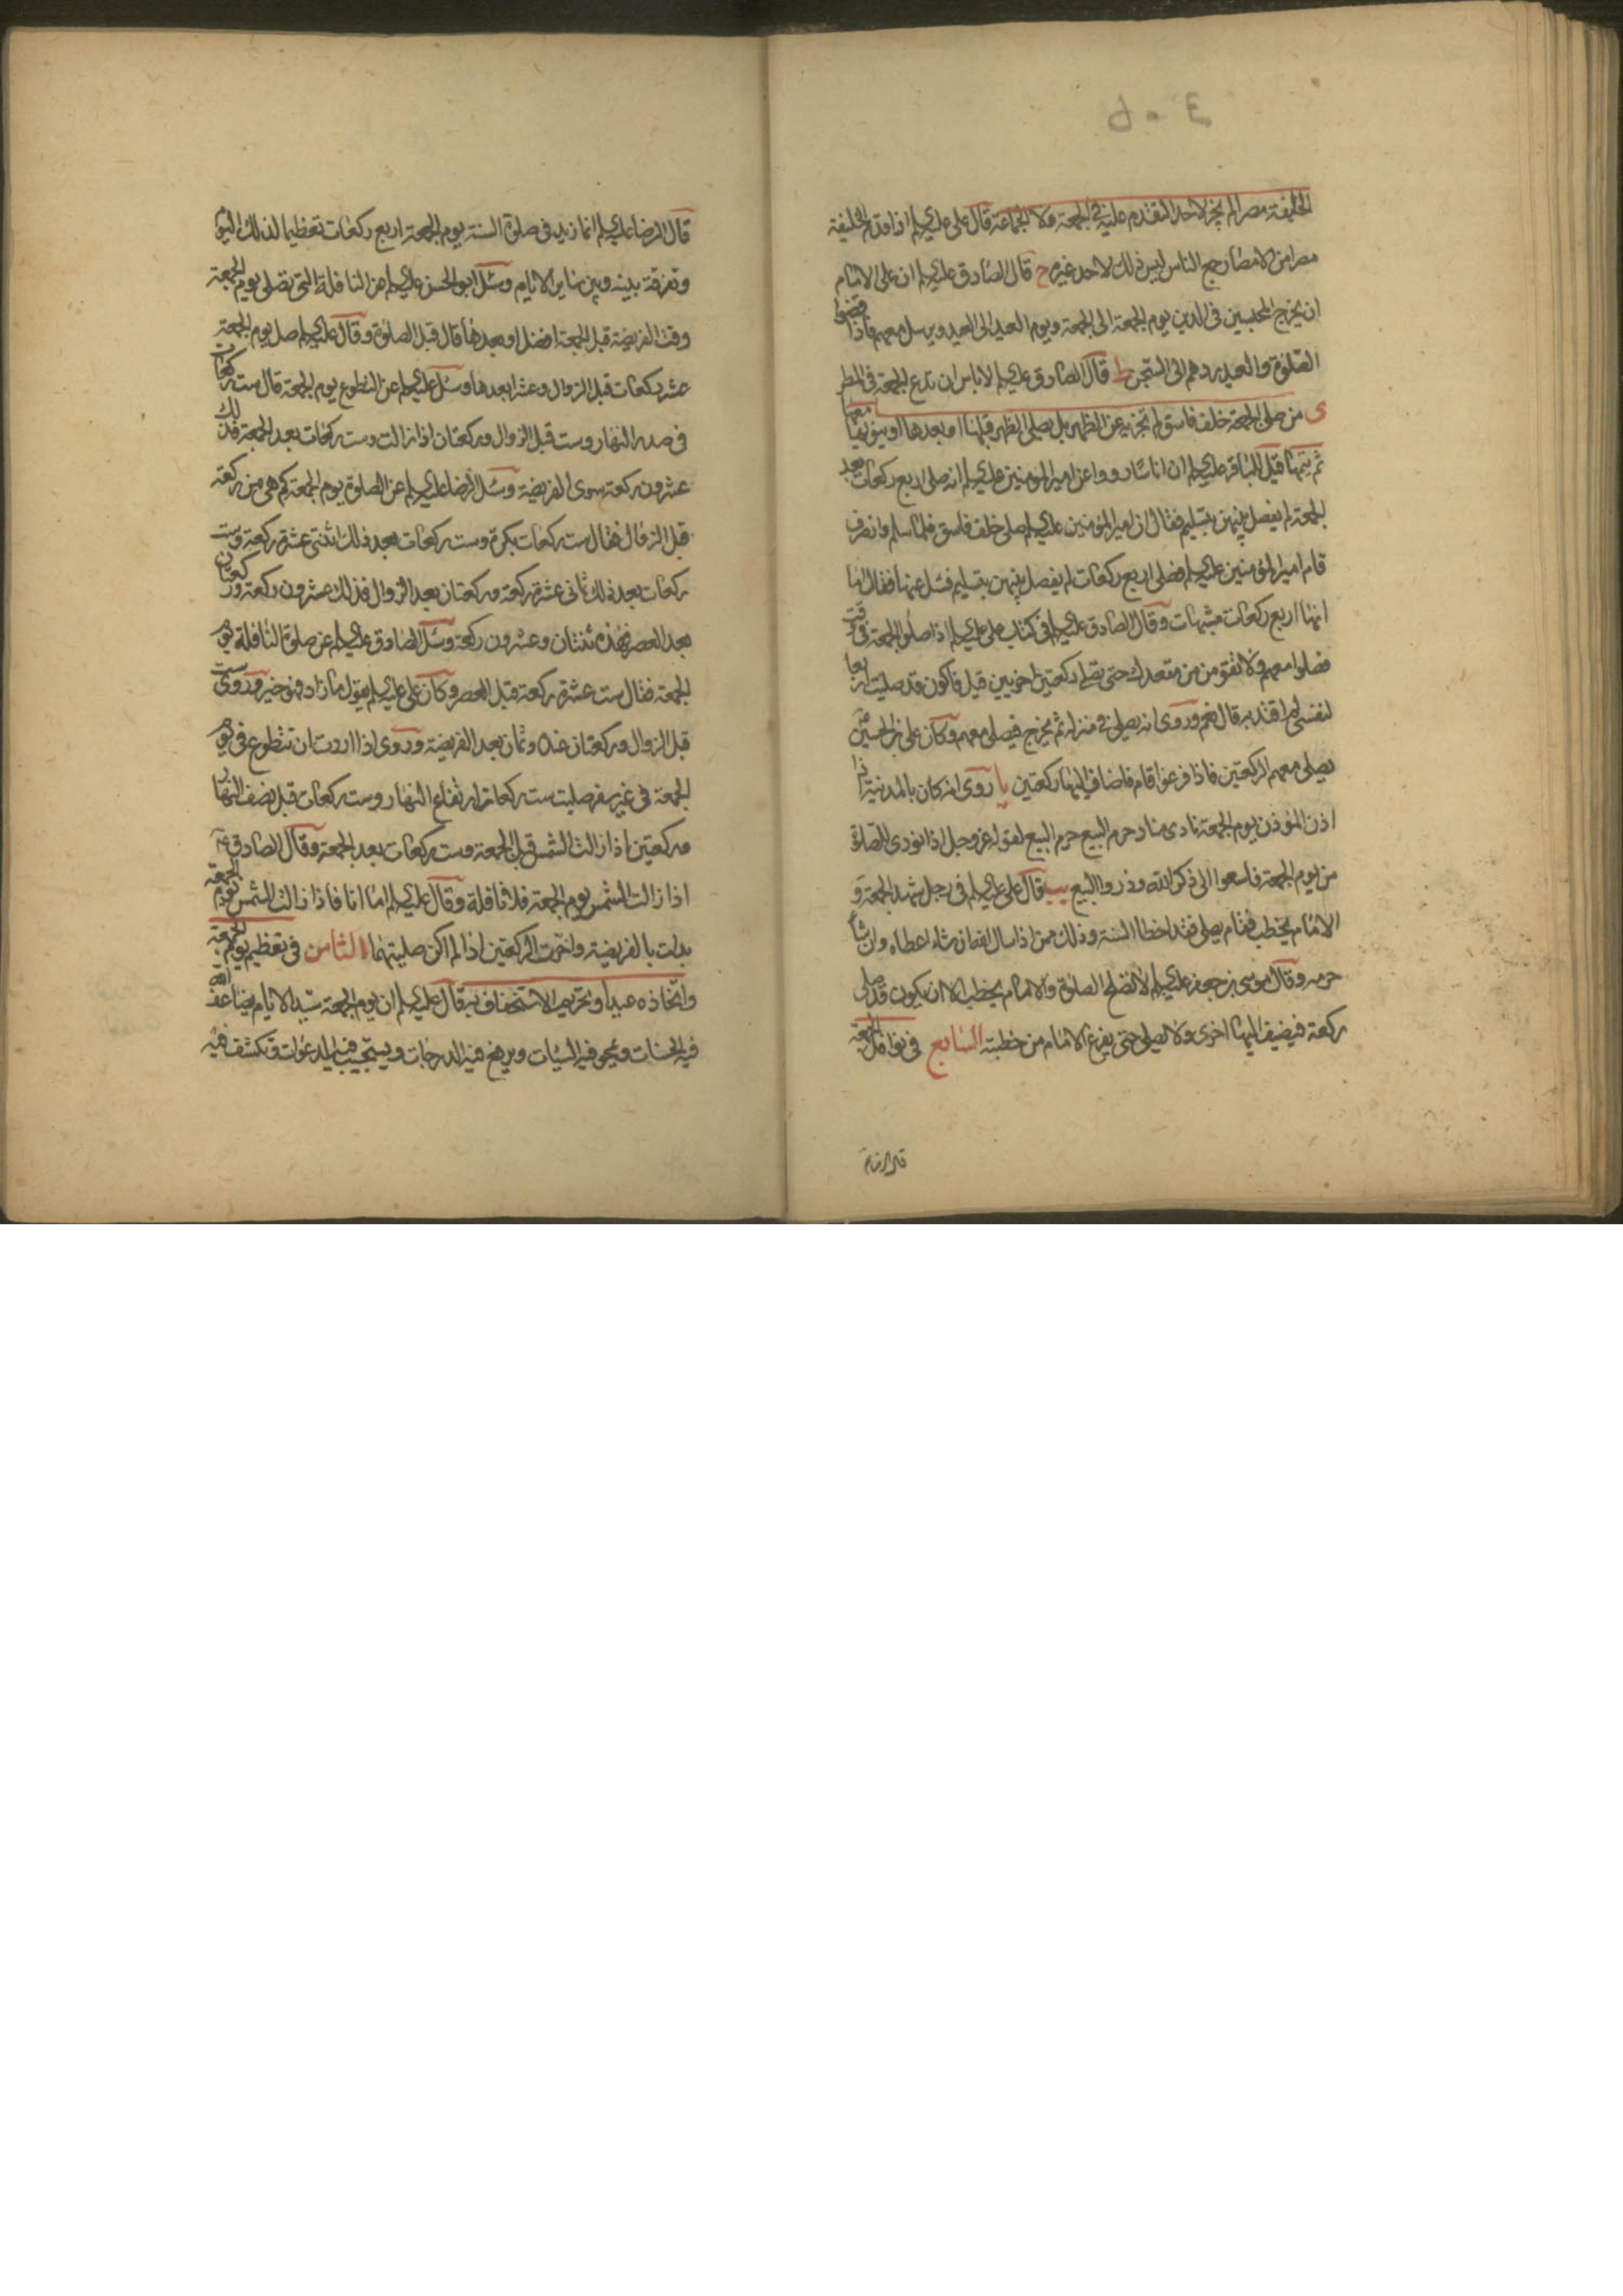 الخليفة مصرا لم يجز لاحد التقدم عليه في الجمعة ولا الجماعة قال علي عليه السلام اذا قدم الخليفة
مصرا من الامصار جمع الناس ليس ذلك لاحد غيره ح قال الصادق عليه السلام ان على الامام
ان يخرج المحبسين في الدين يوم الجمعة الى الجمعة ويوم العيد الى العيد ويرسل معهم فاذا قضوا
الصلوة والعيد ردهم الى السجن ط قال الصادق عليه السلام لا باس ان تدع الجمعة في المطر
ى من صلى الجمعة خلف فاسق لم تجزيه عن الظهر بل يصلي الظهر قبلها او بعدها او ينويها معها
ثم يتمها قيل للباقر عليه السلام ان اناسا رووا عن امير المؤمنين عليه السلام انه صلى اربع ركعات بعد
الجمعة لم يفصل بينهن بتسليم فقال ان امير المؤمنين عليه السلام صلى خلف فاسق فلما سلم وانصرف
قام امير المؤمنين عليه السلام فصلى اربع ركعات لم يفصل بينهن بتسليم فسئل عنها فقال اما
انها اربع ركعات مشبهات وقال الصادق عليه السلام في كتاب علي عليه السلام اذا صلوا الجمعة في وقت
فصلوا معهم ولا تقومن من مقعدك حتى تصلي ركعتين اخريين قيل فاكون قد صليت اربعا
لنفسي لم اقتد به قال نعم وروى انه يصلي في منزله ثم يخرج فيصلي معهم وكان علي بن الحسين
يصلي معهم الركعتين فاذا فرغوا قام فاضاف اليها ركعتين يا روى انه كان بالمدينة اذا
اذن المؤذن يوم الجمعة نادى مناد حرم البيع حرم البيع لقوله عز وجل اذا نودي للصلوة
من يوم الجمعة فاسعوا الى ذكر الله وذروا البيع يب قال علي عليه السلام في رجل شهد الجمعة و
الامام يخطب فقام يصلي فقد اخطا السنة وذلك ممن اذا سال الله ان شاء اعطاه وان شاء
حرمه وقال موسى بن جعفر عليه السلام لا تصلح الصلوة والامام يخطب الا ان يكون قد صلى
ركعة فيضيف اليها اخرى ولا يصلي حتى يفرغ الامام من خطبته السابع في نوافل الجمعة
قال الرضا
قال الرضا عليه السلام انما زيد في صلوة السنة يوم الجمعة اربع ركعات تعظيما لذلك اليوم
وتفرقة بينه وبين ساير الايام وسئل ابو الحسن عليه السلام عن النافلة التي تصلى يوم الجمعة
وقت الفريضة قبل الجمعة افضل او بعدها قال قبل الصلوة وقال عليه السلام صل يوم الجمعة
عشر ركعات قبل الزوال وعشرا بعدها وسئل عليه السلام عن التطوع يوم الجمعة قال ست ركعات
في صدر النهار وست قبل الزوال وركعتان اذا زالت وست ركعات بعد الجمعة فذلك
عشرون ركعة سوى الفريضة وسئل الرضا عليه السلام عن الصلوة يوم الجمعة كم هي من ركعة
قبل الزوال فقال ست ركعات بكرة وست ركعات بعد ذلك اثنتى عشرة ركعة وست
ركعات بعد ذلك ثماني عشرة ركعة وركعتان بعد الزوال فذلك عشرون ركعة وركعتان
بعد العصر فهذه ثنتان وعشرون ركعة وسئل الصادق عليه السلام عن صلوة النافلة يوم
الجمعة فقال ست عشرة ركعة قبل العصر وكان علي عليه السلام يقول ما زاد فهو خير وروى ست
قبل الزوال وركعتان عنده وثمان بعد الفريضة وروى اذا اردت ان تتطوع في يوم
الجمعة في غير سفر صليت ست ركعات ارتفاع النهار وست ركعات قبل نصف النهار
وركعتين اذا زالت الشمس قبل الجمعة وست ركعات بعد الجمعة وقال الصادق ع
اذا زالت الشمس يوم الجمعة فلا نافلة وقال عليه السلام اما انا فاذا زالت الشمس يوم الجمعة
بدات بالفريضة واخرت الركعتين اذا لم اكن صليتهما الثامن في تعظيم يوم الجمعة
واتخاذه عيدا وتحريم الاستخفاف به قال عليه السلام ان يوم الجمعة سيد الايام يضاعف الله
فيه الحسنات ويمحو فيه السيئات ويرفع فيه الدرجات ويستجيب فيه الدعوات وتكشف فيه